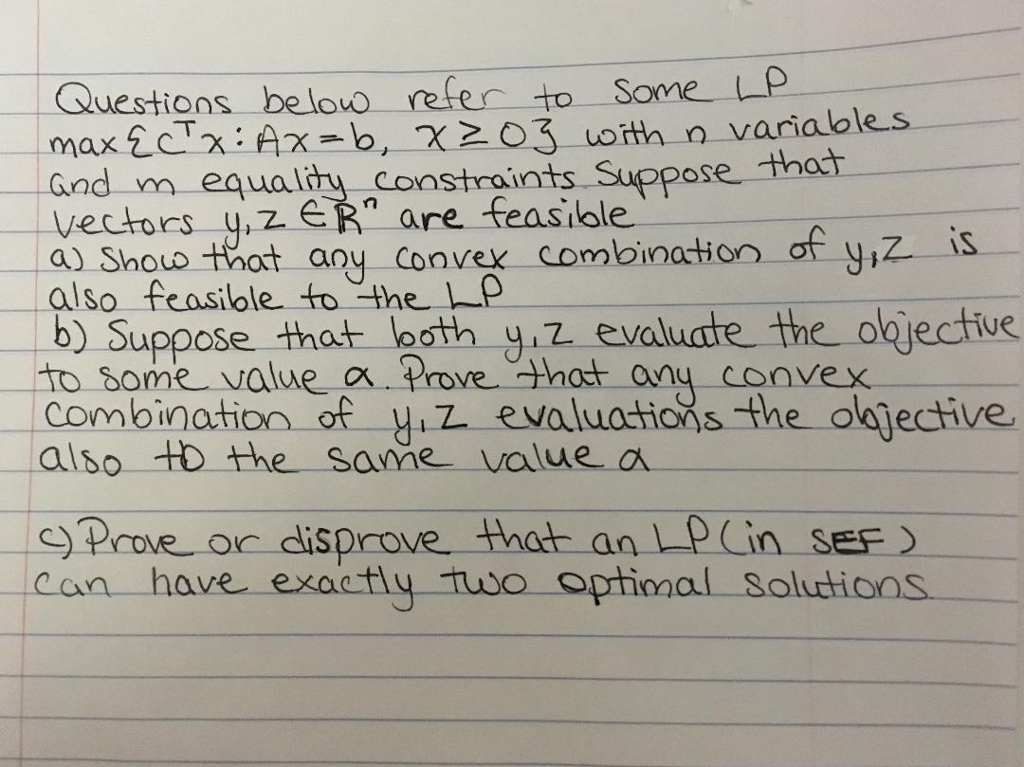 Questions below refer to some LP
max {cᵀx: Ax=b, x≥0} with n variables
and m equality constraints. Suppose that
vectors y,z ∈ ℝⁿ are feasible
a) Show that any convex combination of y,z is
also feasible to the LP
b) Suppose that both y,z evaluate the objective
to some value α. Prove that any convex
combination of y,z evaluations the objective
also to the same value α
c) Prove or disprove that an LP (in SEF)
can have exactly two optimal solutions